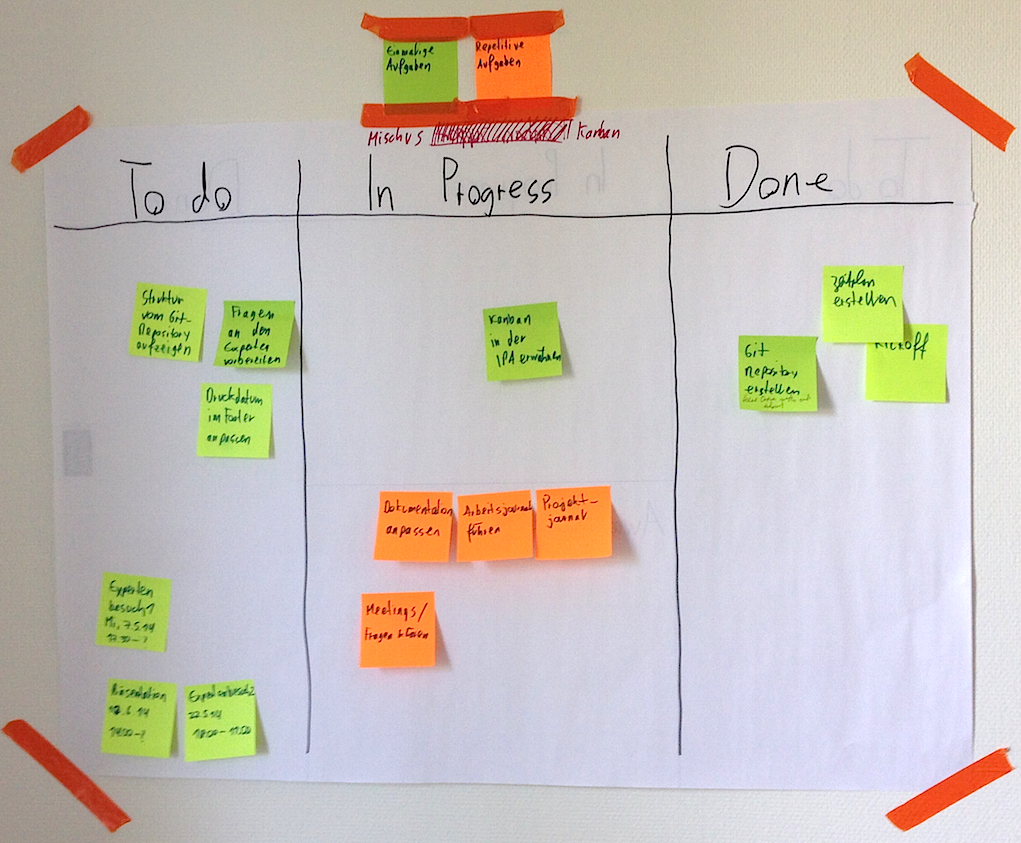 Einmalige
Aufgaben
Repetitive
Aufgaben
Mischus
Kanban
To do
In Progress
Done
Struktur
vom Git-
Repository
aufzeigen
Fragen
an den
Experten
vorbereiten
Druckdatum
im Footer
anpassen
Experten
besuch 1
Mi, 7.5.14
Präsentation
14:00-?
Expertenbesuch 2
22.5.14
Kanban
in der
IPA erwähnen
Dokumentation
anpassen
Arbeitsjournal
führen
Projekt-
journal
Meetings/
Fragen
Zeitplan
erstellen
Kickoff
Git
Repository
erstellen